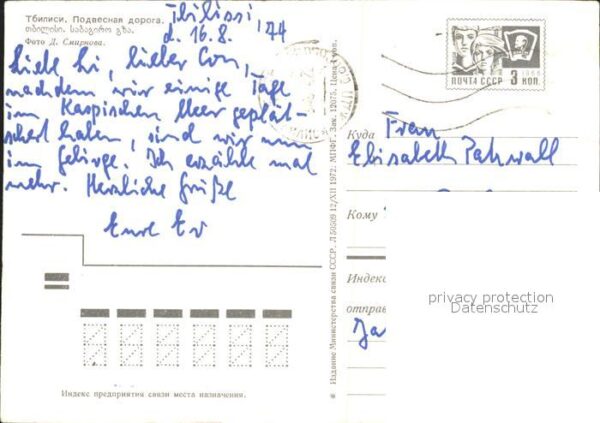 Тбилиси. Подвесная дорога.
თბილისი. საბაგირო გზა.
Фото Д. Смирнова.
Tbilissi,
d. 16.8. 74
Liebe Li, lieber Con,
nachdem wir einige Tage
im Kaspischen Meer geplät-
schert haben, sind wir nun
im Gebirge. Ich erzähle mal
mehr. Herzliche Grüße
Eure Ev
ПОЧТА СССР 3 КОП.
1966
Куда
Frau
Elisabeth
Кому
Индекс
отправ
privacy protection
Datenschutz
Издание Министерства связи СССР. Л 50509 12/XII 1972. МПФГ. Зак. 12075. Цена 4 коп.
Индекс предприятия связи места назначения.